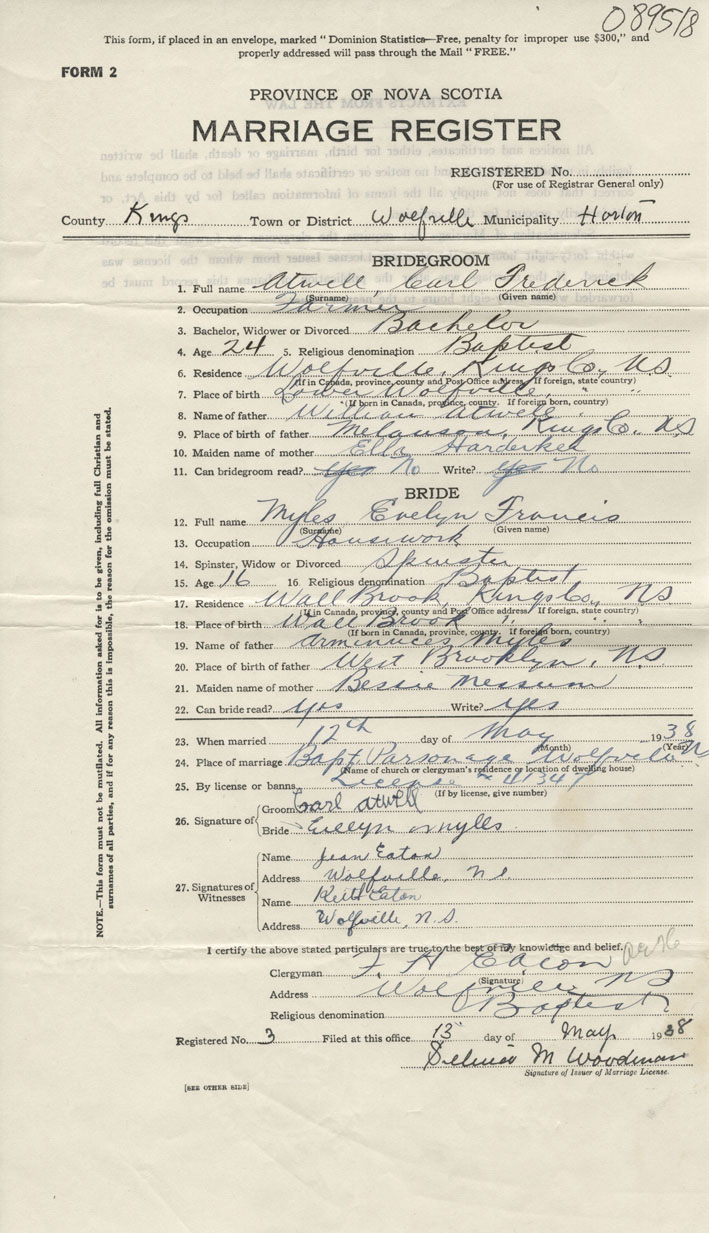 089518
This form, if placed in an envelope, marked "Dominion Statistics—Free, penalty for improper use $300," and
properly addressed will pass through the Mail "FREE."
FORM 2
PROVINCE OF NOVA SCOTIA
MARRIAGE REGISTER
REGISTERED No.
(For use of Registrar General only)
County Kings Town or District Wolfville Municipality Horton
BRIDEGROOM
1. Full name Atwell, Carl Frederick
(Surname) (Given name)
2. Occupation Farmer
3. Bachelor, Widower or Divorced Bachelor
4. Age 24 5. Religious denomination Baptist
6. Residence Wolfville, Kings Co., N.S
(If in Canada, province, county and Post Office address. If foreign, state country)
7. Place of birth Lower Wolfville "
(If born in Canada, province, county. If foreign born, country)
8. Name of father William Atwell
9. Place of birth of father Melanson, Kings Co., N.S
10. Maiden name of mother Ella
11. Can bridegroom read? Yes No Write? Yes No
BRIDE
12. Full name Myles Evelyn Francis
(Surname) (Given name)
13. Occupation Housework
14. Spinster, Widow or Divorced Spinster
15. Age 16 16. Religious denomination Baptist
17. Residence Wall Brook, Kings Co., N.S
(If in Canada, province, county and Post Office address. If foreign, state country)
18. Place of birth Wall Brook " " "
(If born in Canada, province, county. If foreign born, country)
19. Name of father Myles
20. Place of birth of father West Brooklyn, N.S
21. Maiden name of mother Bessie Messum
22. Can bride read? yes Write? yes
23. When married 12th day of May 1938
(Month) (Year)
24. Place of marriage Bapt. Parsonage Wolfville N
(Name of church or clergyman's residence or location of dwelling house)
25. By license or banns License
(If by license, give number)
26. Signature of Groom Carl Atwell
Bride Evelyn Myles
27. Signatures of Witnesses
Name Jean Eaton
Address Wolfville, N.S.
Name Keith Eaton
Address Wolfville, N.S.
I certify the above stated particulars are true to the best of my knowledge and belief.
Clergyman F. H. Eaton
(Signature)
Address Wolfville N S
Religious denomination Baptist
Registered No. 3 Filed at this office 13 day of May 1938
M Woodman
Signature of Issuer of Marriage License.
[SEE OTHER SIDE]
NOTE.—This form must not be mutilated. All information asked for is to be given, including full Christian and
surnames of all parties, and if for any reason this is impossible, the reason for the omission must be stated.